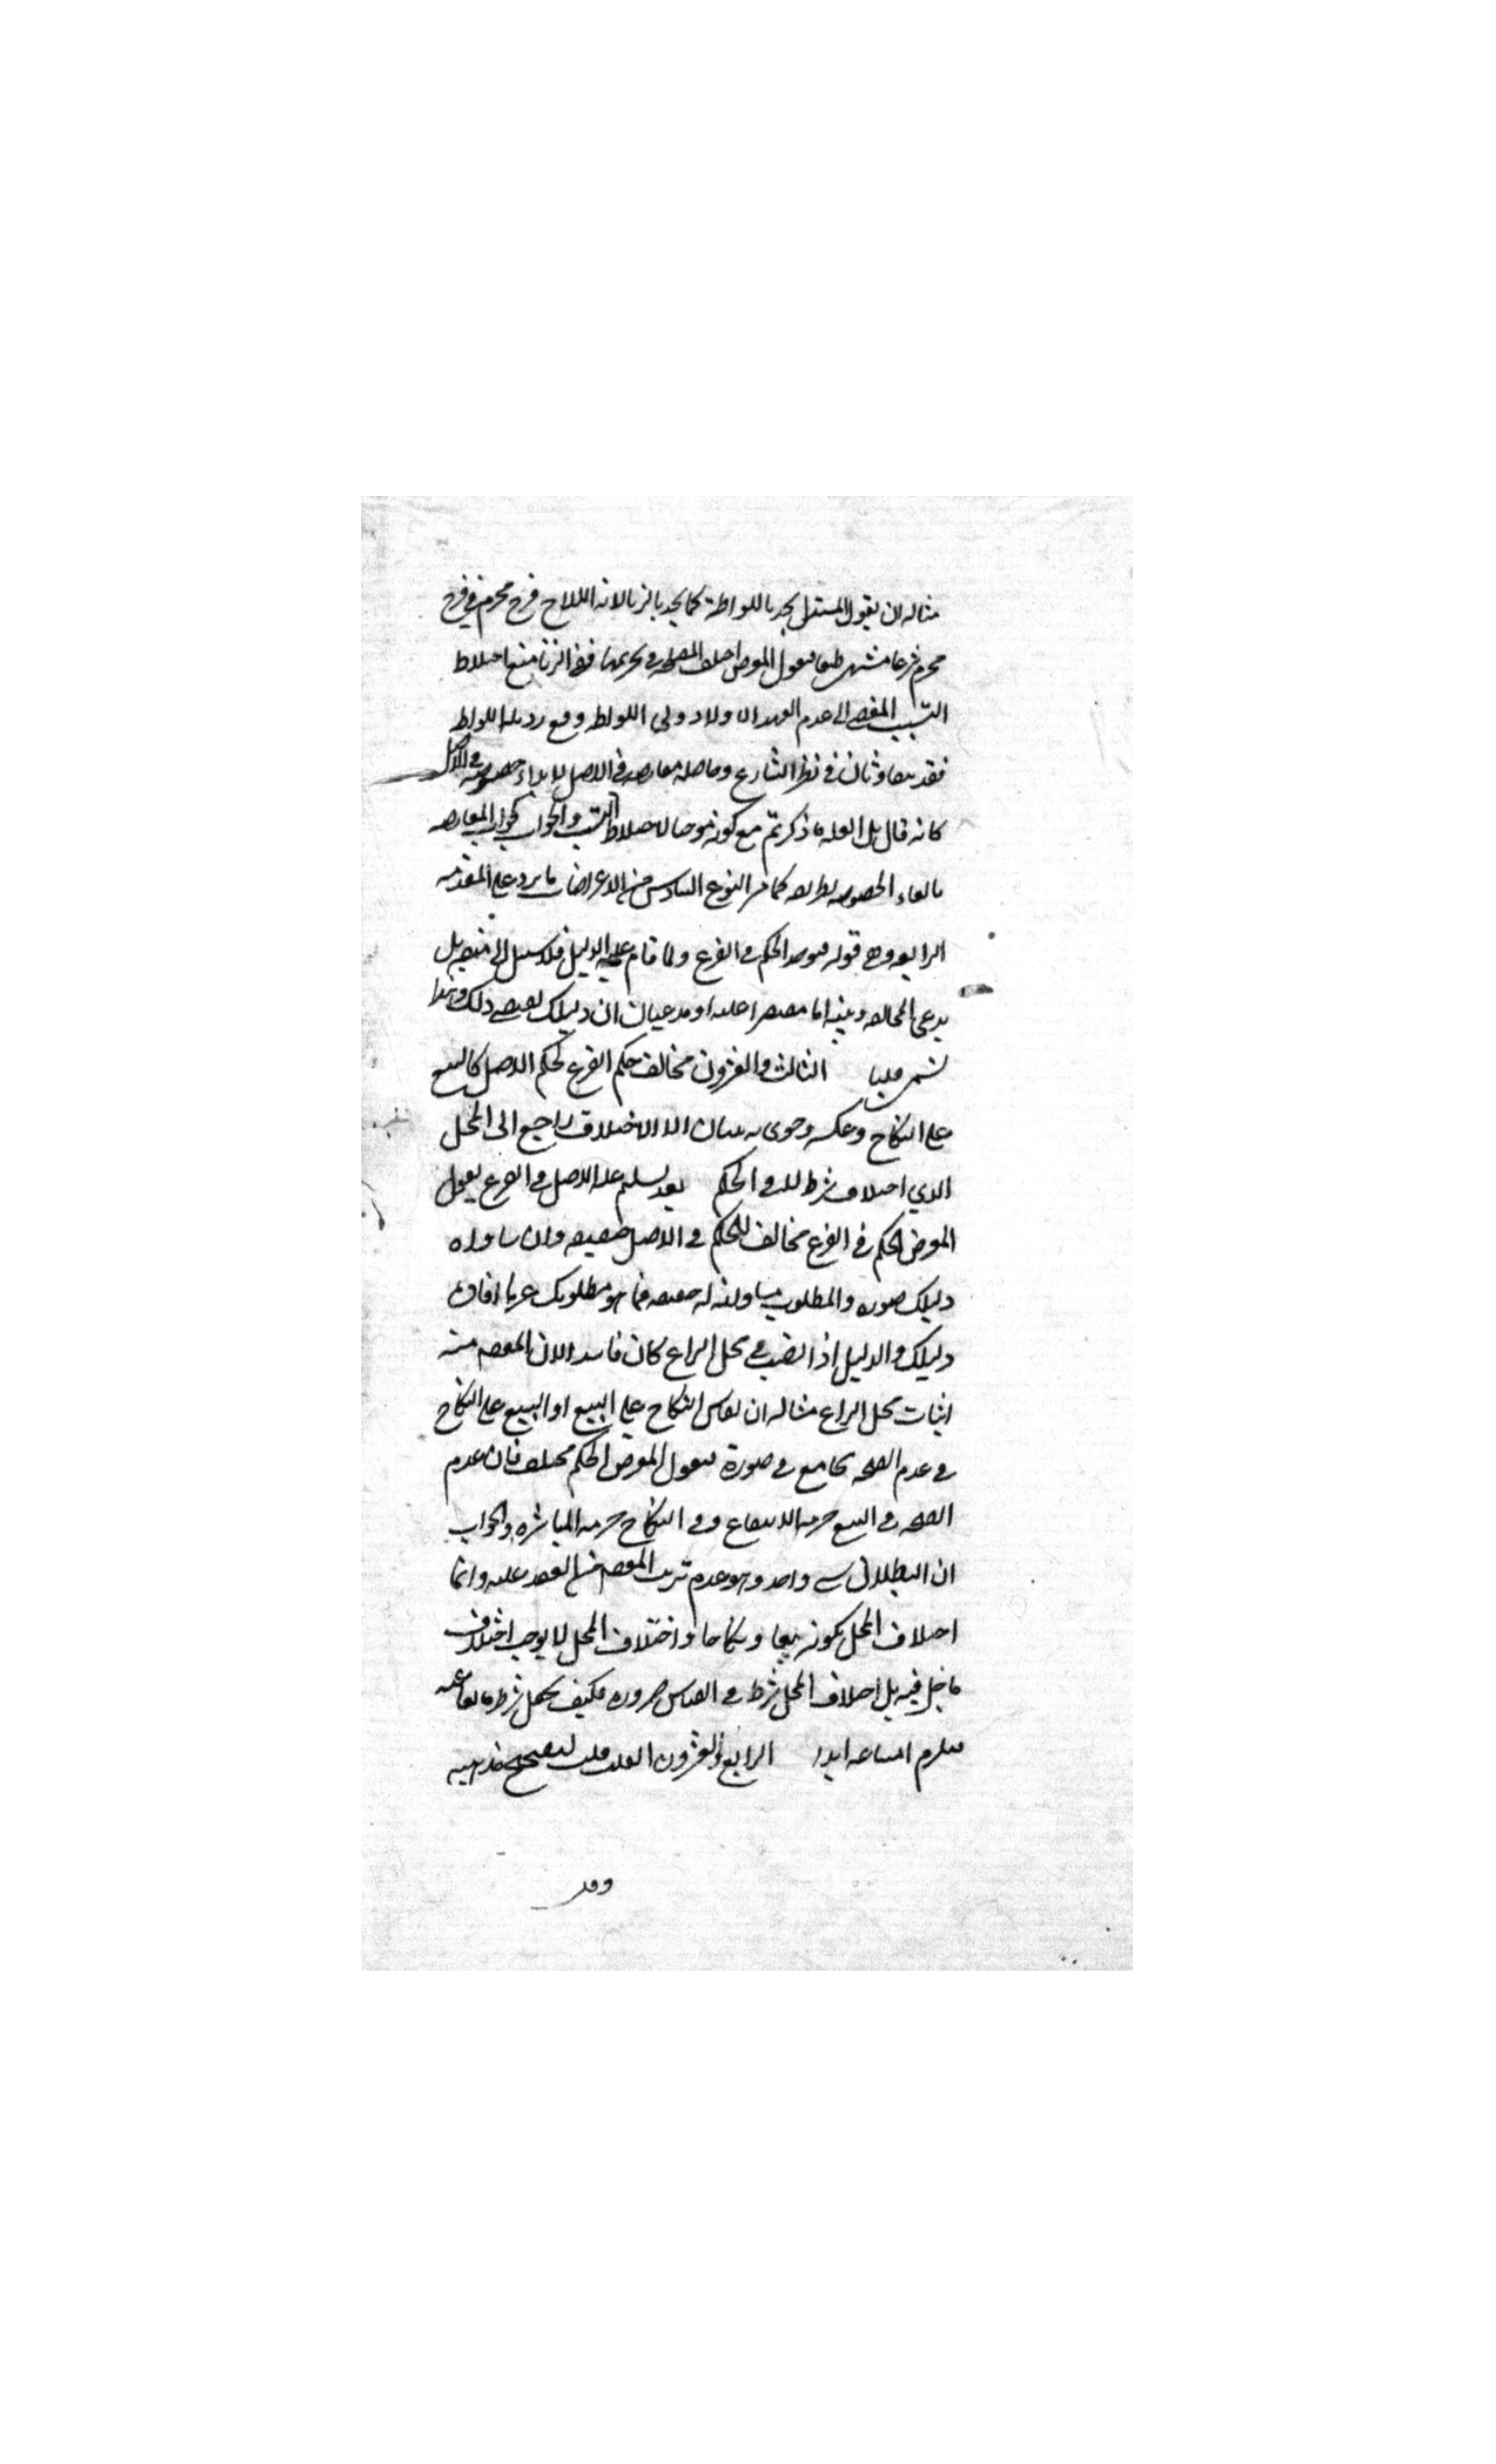 مثاله ان يقول المستدل يحد باللواطة كما يحد بالزنا لانه ايلاج فرج محرم في فرج
محرم شرعا مشتهى طبعا فيقول المعترض اختلف المصلحة في تحريمهما ففي الزنا منع اختلاط
النسب المفضي الى عدم تعهد الاولاد وفي اللواطه دفع رذيلة اللواطه
فقد يتفاوتان في نظر الشارع وحاصله معارضه في الاصل لابداء خصوصيه في الاصل
كانه قال بل العله ما ذكرتم مع كونه موجبا لاختلاط النسب والجواب كجواب المعارضه
بالغاء الخصوصيه بطريقه كما مر النوع السادس من الاعتراضات ما يرد على المقدمه
الرابعه وهي قوله فيوجد الحكم في الفرع ولما قام عليه الدليل فلا سبيل الى منعه بل
يدعى المخالفه وبينه اما مقتصرا عليه او مدعيا ان دليلك يقتضي ذلك وهذا
يسمى قلبا الثالث والعشرون مخالفة حكم الفرع لحكم الاصل كالبيع
على النكاح وعكسه وجوابه ببيان ان الاختلاف راجع الى المحل
الذي اختلافه شرط لا في الحكم بعد تسليم عله الاصل في الفرع يقول
المعترض الحكم في الفرع مخالف للحكم في الاصل حقيقه وان ساواه
دليلك صوره والمطلوب مساواته له حقيقه فما هو مطلوبك غير ما افاده
دليلك والدليل اذا نصب في محل النزاع كان فاسدا لان المقصود منه
اثبات محل النزاع مثاله ان يقاس النكاح على البيع او البيع على النكاح
في عدم الصحه بجامع في صورة فيقول المعترض الحكم مختلف فان عدم
الصحه في البيع حرمه الانتفاع وفي النكاح حرمه المباشره والجواب
ان البطلان شي واحد وهو عدم ترتب المقصود من العقد عليه وانما
اختلاف المحل بكونه بيعا ونكاحا واختلاف المحل لا يوجب اختلاف
ما حل فيه بل اختلاف المحل شرط في القياس ضروره فكيف يجعل شرطه مانعا عنه
فيلزم امتناعه ابدا الرابع والعشرون القلب قلب لتصحيح مذهبه